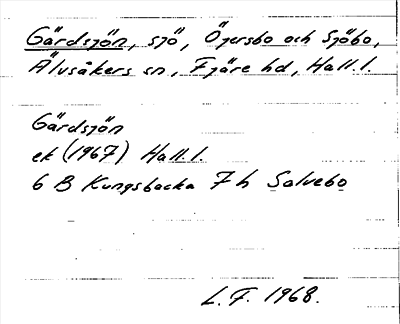 Gärdsjön, sjö, Öjersbo och Sjöbo,
Älvsåkers sn, Fjäre hd, Hall. l.
Gärdsjön
ek (1967) Hall. l.
6 B Kungsbacka 7 h Salvebo
L. F. 1968.